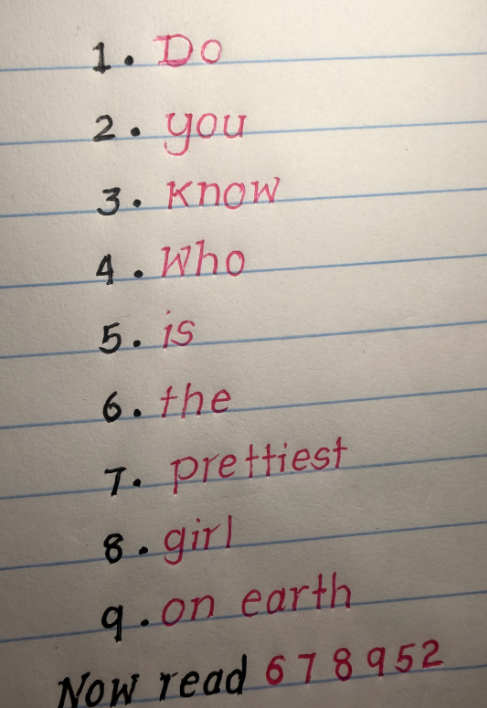 1. Do
2. you
3. Know
4. Who
5. is
6. the
7. prettiest
8. girl
9. on earth
Now read 678952